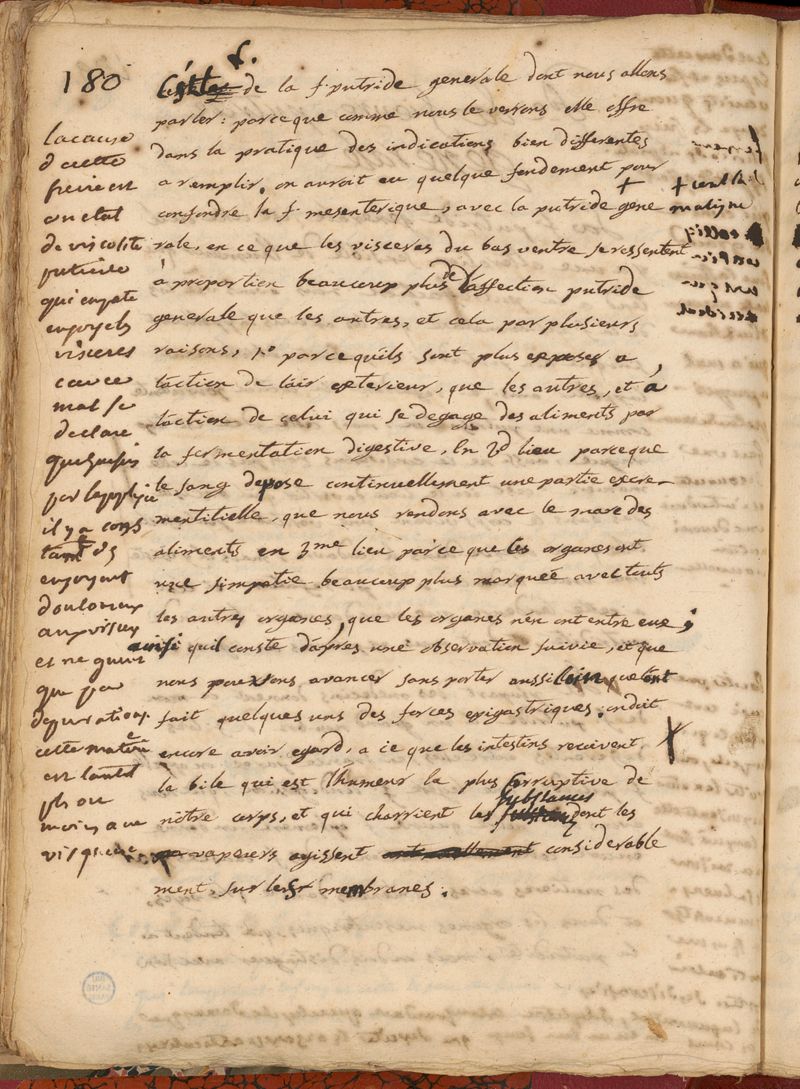 180
de la f. putride generale dont nous allons
parler: parceque comme nous le verrons elle offre
dans la pratique des indications bien differentes
a remplir. on auroit eu quelque fondement pour
confondre la f. mesenterique, avec la putride + gene
rale, en ce que les visceres du bas ventre se ressentent
à proportion beaucoup plus de l'affection putride
generale que les autres, et cela par plusieurs
raisons, 1º parcequ'ils sont plus exposes a
l'action de l'air exterieur, que les autres, et à
l'action de celui qui se degage des aliments par
la fermentation digestive, En 2d lieu parceque
le sang depose continuellement une partie excre-
mentitielle, que nous rendons avec le marc des
aliments en 3me lieu parce que les organes ont
une simpatie beaucoup plus marquée avec touts
les autres organes, que les organes n'en ont entre eux;
ainsi quil conste d'apres une observation suivie, et que
nous pouvons avancer sans porter aussi loin que l'ont
fait quelques uns des forces epigastriques. on doit
encore avoir egard, a ce que les intestins recoivent
la bile qui est l'humeur la plus corruptive de
notre corps, et qui charrient les substances dont les
vapeurs agissent considerable
ment, sur leurs membranes.
la cause
de cette
fievre est
un etat
de viscosité
putride
qui empate
engorge les
visceres
ce
mal se
declare
quelquefois
par
il y a cons
tamt des
engorgemt
douloureux
aux visceres
et ne guerit
que par
depuration
cette matiere
est tantot
plus ou
moins
visqueuse
+
maligne